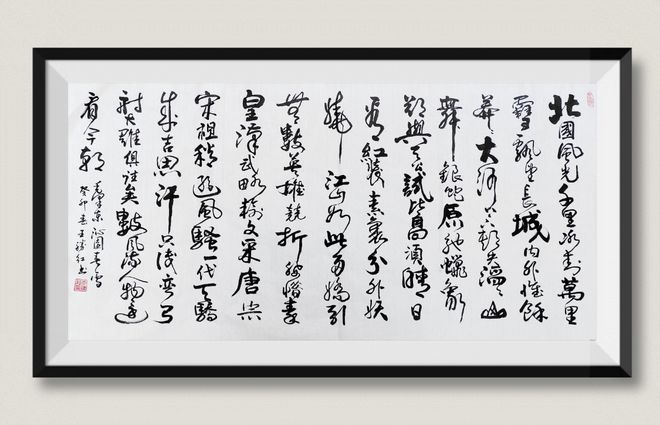 北國風光千里冰封萬里
雪飄望長城内外惟餘
莽〻大河上下頓失滔〻山
舞銀蛇原馳蠟象
欲與天公試比高須晴日
看紅裝素裹分外妖
嬈江山如此多嬌引
無數英雄競折腰惜秦
皇漢武略輸文采唐宗
宋祖稍遜風騷一代天驕
成吉思汗只識彎弓
射大雕俱往矣數風流人物還
看今朝
毛澤東沁園春雪
癸卯春王红书